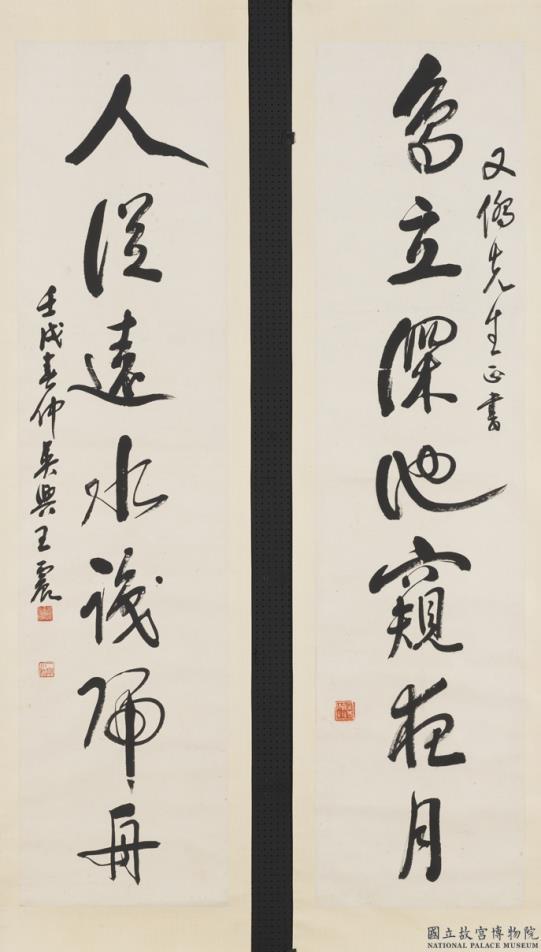 又僑先生正書
鳥立深池窺夜月
人從遠水識歸舟
壬戌春仲吳興王震
國立故宮博物院
NATIONAL PALACE MUSEUM